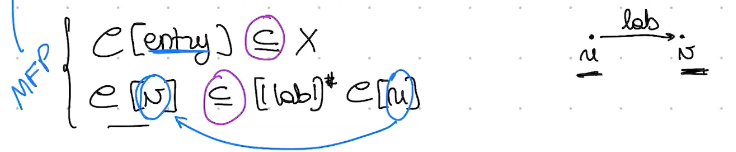 MFP
C[entry] ⊆ X
C[v] ⊆ [[lab]]# C[u]
lab
u v